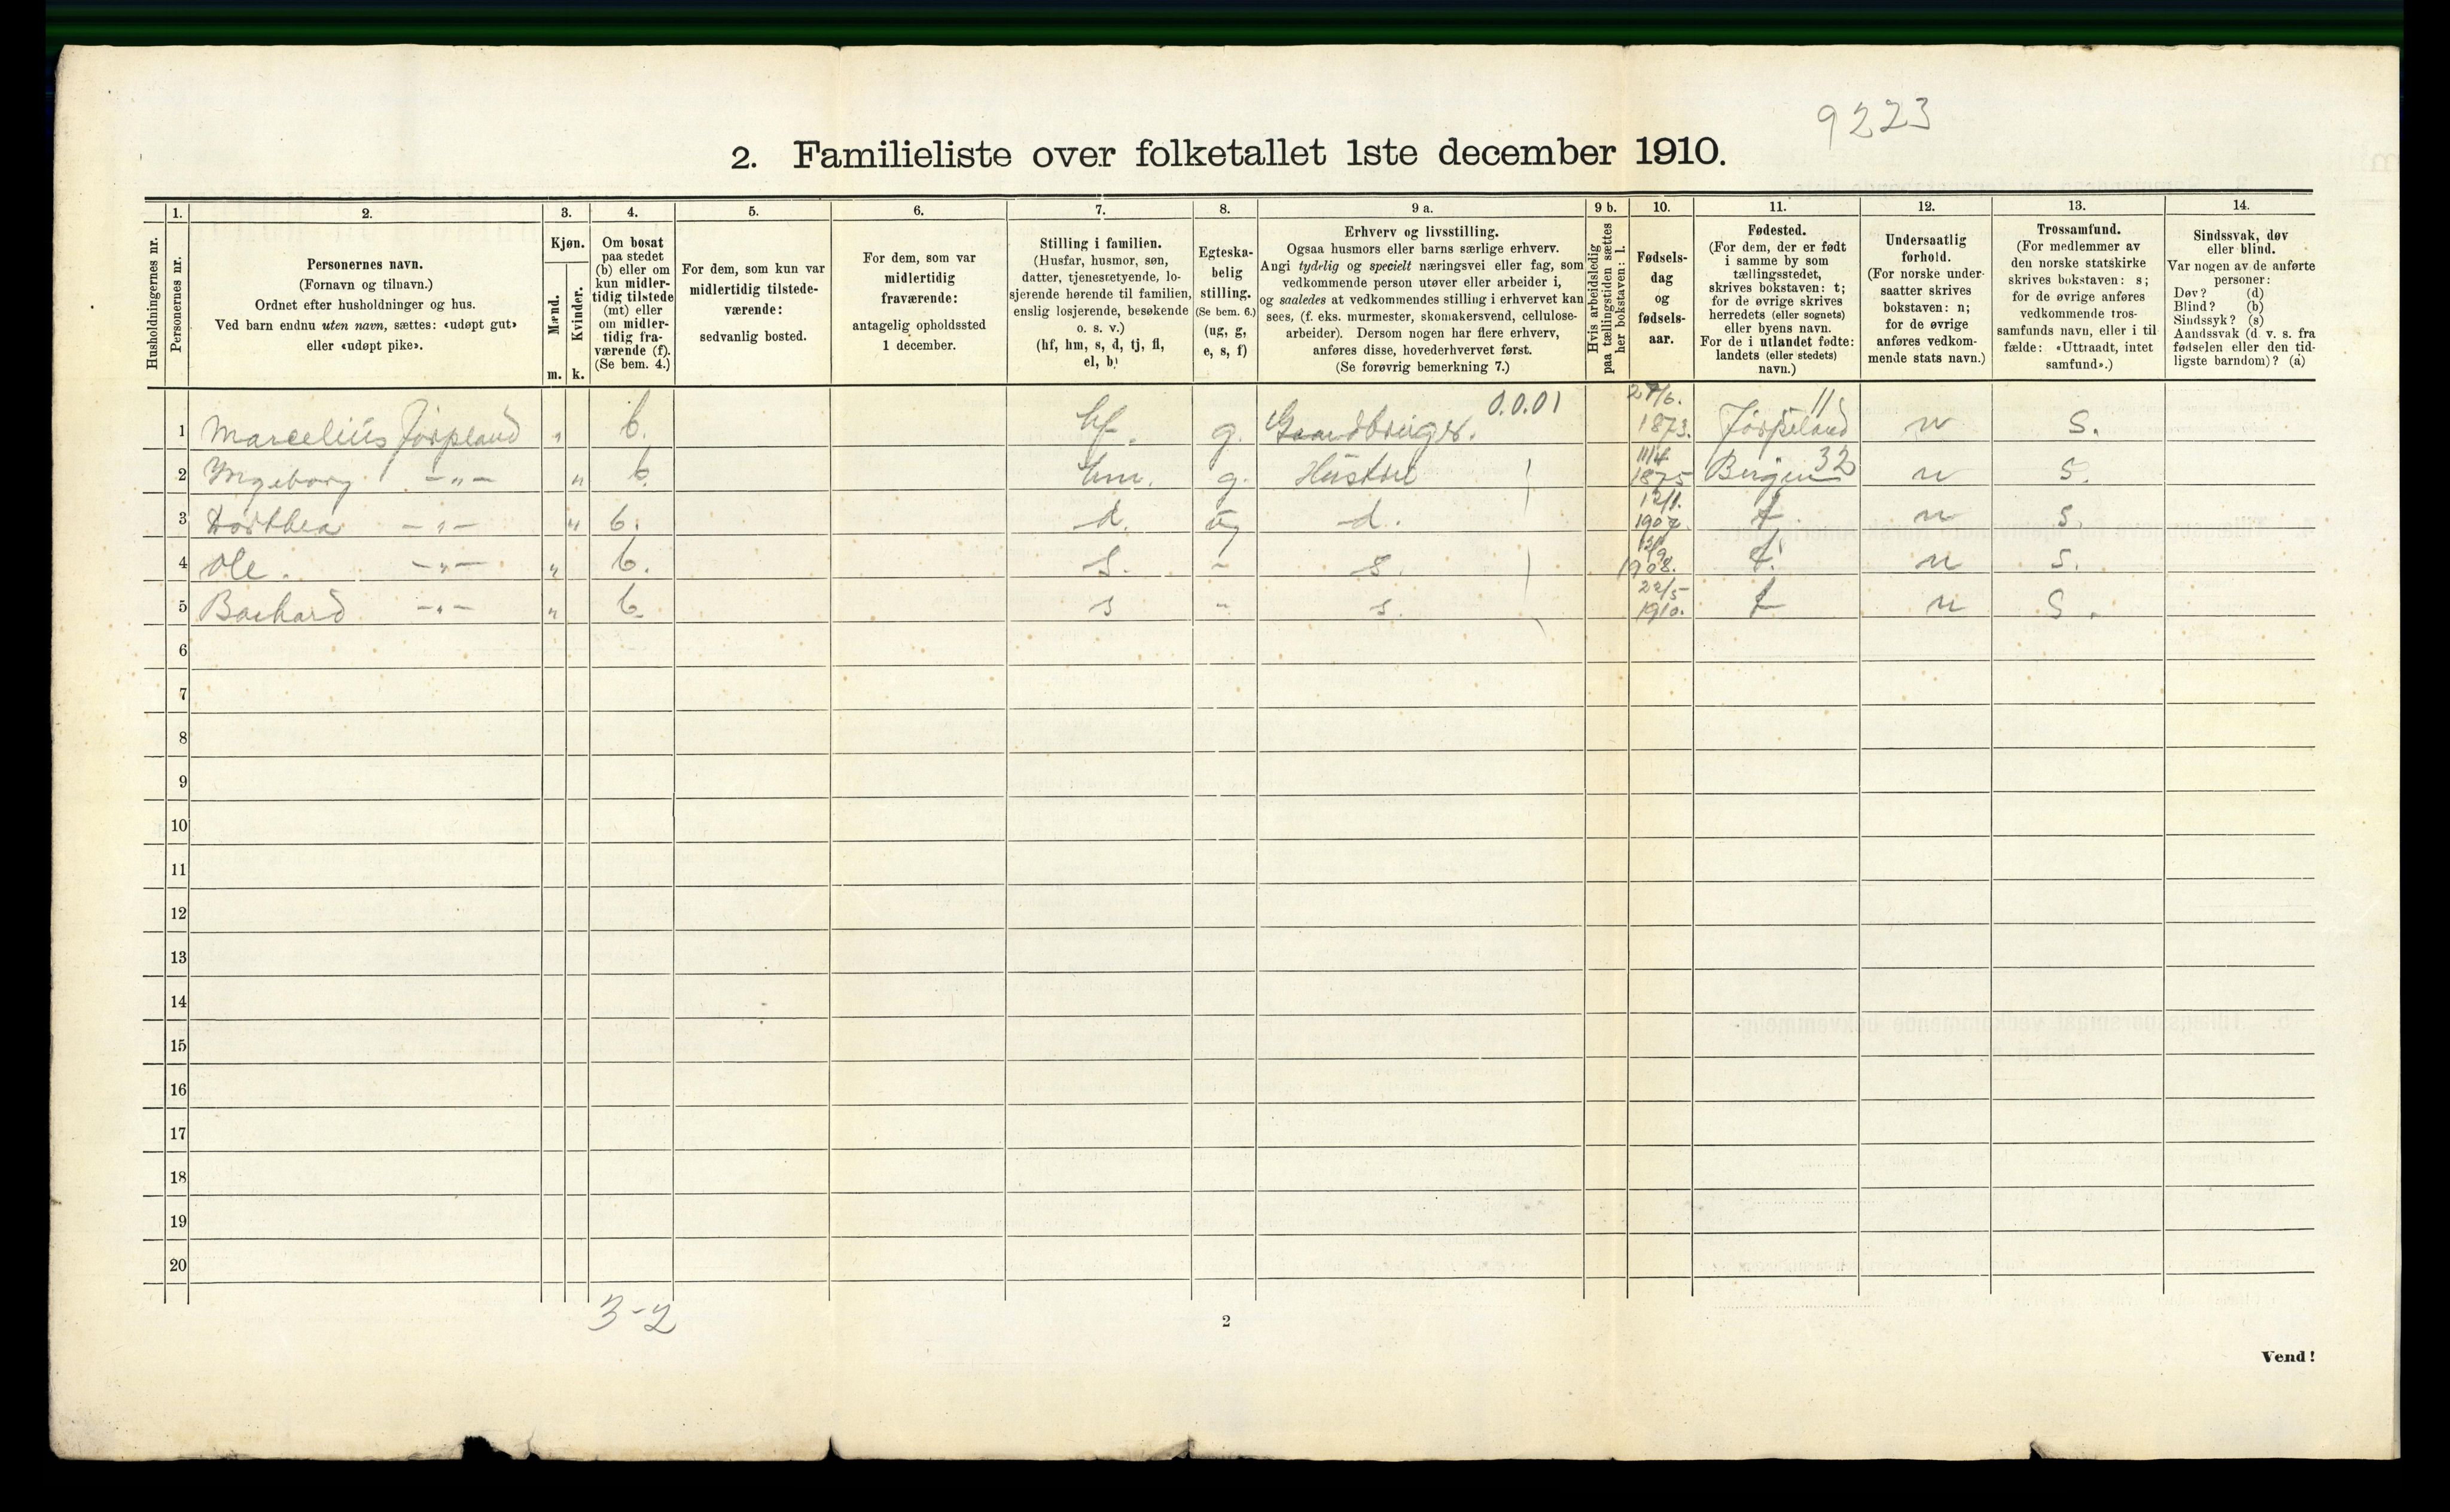 9223
2. Familieliste over folketallet 1ste december 1910.
1. 2. 3. 4. 5. 6. 7. 8. 9 a. 9 b. 10. 11. 12. 13. 14.
Husholdningernes nr.
Personernes nr.
Personernes navn.
(Fornavn og tilnavn.)
Ordnet efter husholdninger og hus.
Ved barn endnu uten navn, sættes: «udøpt gut»
eller «udøpt pike».
Kjøn.
Mænd.
Kvinder.
m. k.
Om bosat
paa stedet
(b) eller om
kun midler-
tidig tilstede
(mt) eller
om midler-
tidig fra-
værende (f).
(Se bem. 4.)
For dem, som kun var
midlertidig tilstede-
værende:
sedvanlig bosted.
For dem, som var
midlertidig
fraværende:
antagelig opholdssted
1 december.
Stilling i familien.
(Husfar, husmor, søn,
datter, tjenestetyende, lo-
sjerende hørende til familien,
enslig losjerende, besøkende
o. s. v.)
(hf, hm, s, d, tj, fl,
el, b)
Egteska-
belig
stilling.
(Se bem. 6.)
(ug, g,
e, s, f)
Erhverv og livsstilling.
Ogsaa husmors eller barns særlige erhverv.
Angi tydelig og specielt næringsvei eller fag, som
vedkommende person utøver eller arbeider i,
og saaledes at vedkommendes stilling i erhvervet kan
sees, (f. eks. murmester, skomakersvend, cellulose-
arbeider). Dersom nogen har flere erhverv,
anføres disse, hovederhvervet først.
(Se forøvrig bemerkning 7.)
Hvis arbeidsledig
paa tællingstiden sættes
her bokstaven: l.
Fødsels-
dag
og
fødsels-
aar.
Fødested.
(For dem, der er født
i samme by som
tællingsstedet,
skrives bokstaven: t;
for de øvrige skrives
herredets (eller sognets)
eller byens navn.
For de i utlandet fødte:
landets (eller stedets)
navn.)
Undersaatlig
forhold.
(For norske under-
saatter skrives
bokstaven: n;
for de øvrige
anføres vedkom-
mende stats navn.)
Trossamfund.
(For medlemmer av
den norske statskirke
skrives bokstaven: s;
for de øvrige anføres
vedkommende tros-
samfunds navn, eller i til-
fælde: «Uttraadt, intet
samfund».)
Sindssvak, døv
eller blind.
Var nogen av de anførte
personer:
Døv? (d)
Blind? (b)
Sindssyk? (s)
Aandssvak (d. v. s. fra
fødselen eller den tid-
ligste barndom)? (a)
1 Marcelius Jørpeland " b. hf. g. Gaardbruger. 0.0.01 1873. Jørpeland 11 n s.
2 Yngeborg -„- " b. hm. g. Hustru 11/4 1875 Bergen 32 n s.
3 Dorthea -„- " b. d. ug d. 12/1. 1907. t n s.
4 Ole. -„- " b. s. " s. 12/9 1908. t. n s.
5 Bachard -„- " b. s " s. 22/5 1910. t n s.
6
7
8
9
10
11
12
13
14
15
16
17
18
19
20
3-2
2
Vend!